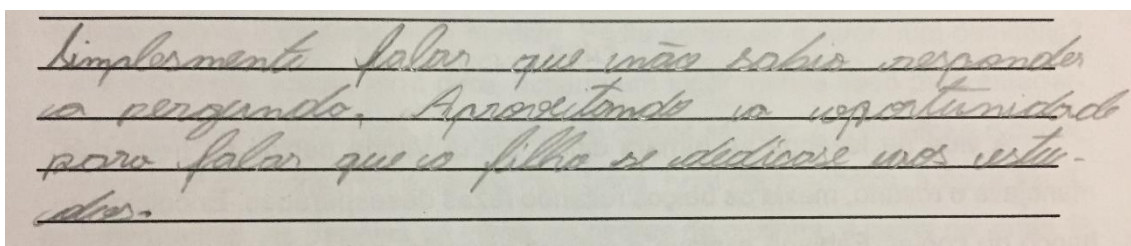 Simplesmente falar que não sabia responder
a pergunda. Aproveitando a oportunidade
para falar que o filho se dedicase aos estu-
dos.